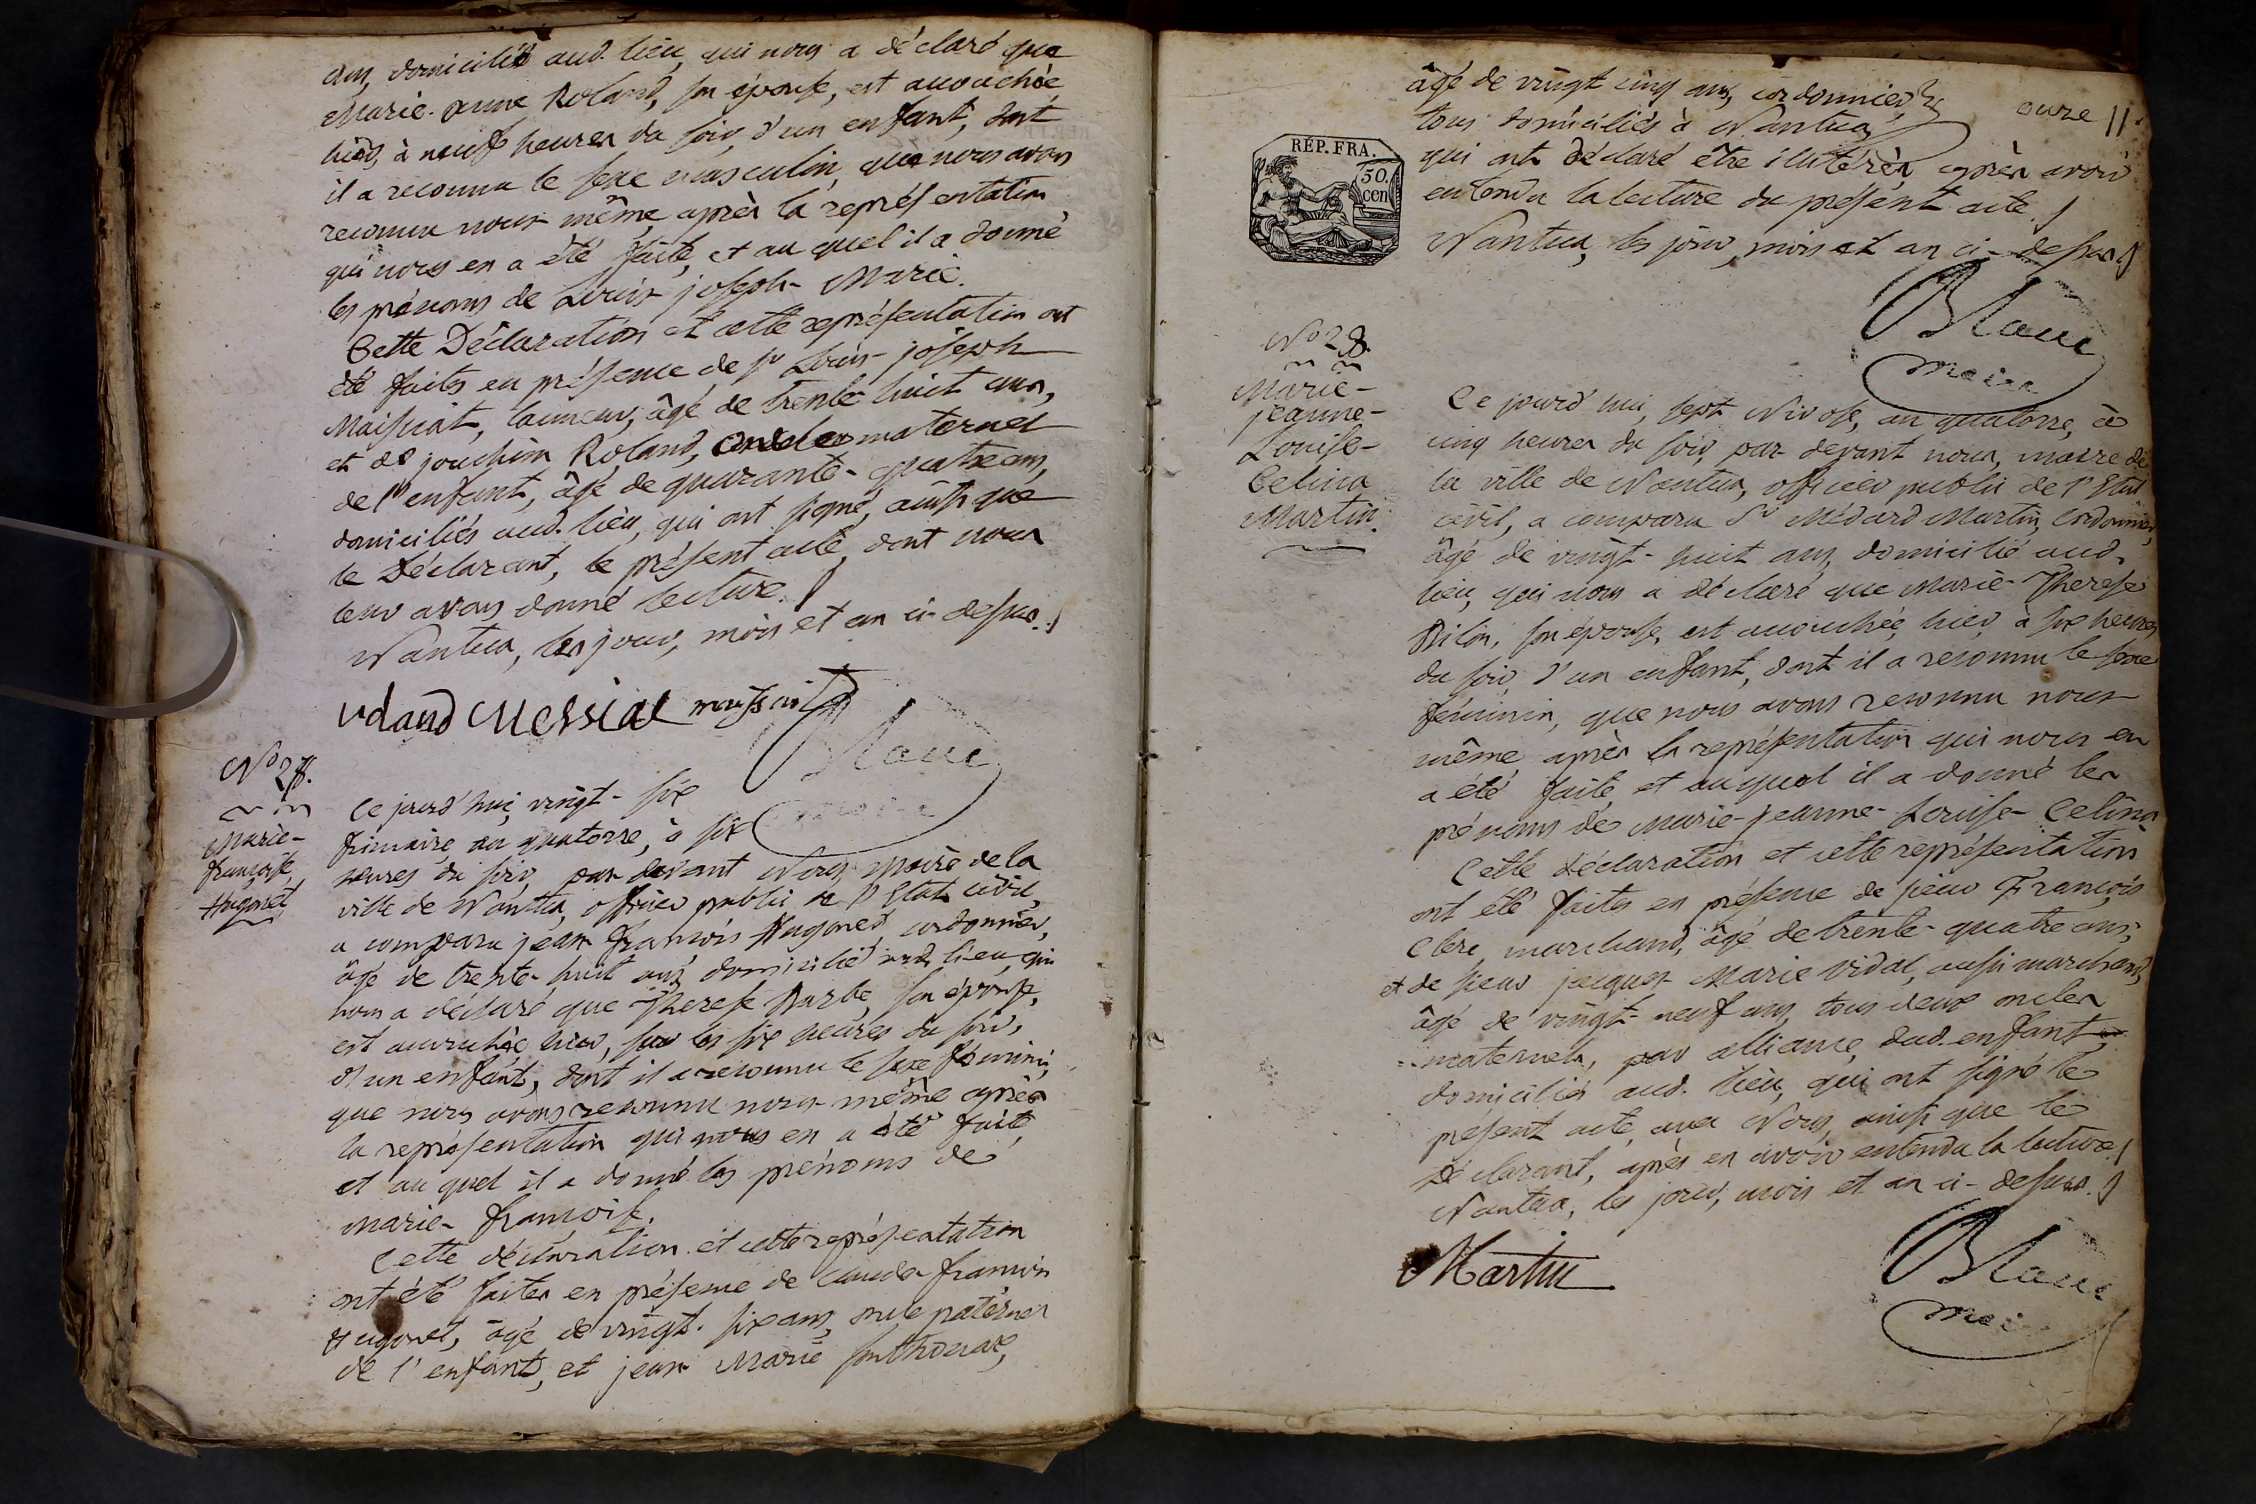 ans, domicilié aud. lieu, qui nous a déclaré que
Marie-anne Roland, son épouse, est accouchée
hier, à neuf heures du soir, d'un enfant, dont
il a reconnu le sexe masculin, que nous avons
reconnu nous-même, après la représentation
qui nous en a été faite, et au quel il a donné
les prénoms de Louis-joseph-Marie.
Cette Déclaration et cette représentation ont
été faites en présence de Sr Louis-joseph
Maissiat, tanneur, âgé de trente-huit ans,
et de joachim Roland, oncle maternel
de l'enfant, âgé de quarante-quatre ans,
domiciliés aud. lieu, qui ont signé, ainsi que
le Déclarant, le présent acte, dont nous
leur avons donné lecture.
Nantua, les jour, mois et an ci-dessus.
Messiat maissiat
Blanc
maire
No 27.
Marie-
françoise
Hugonet
Ce jourd'hui, vingt-six
frimaire, an quatorze, à six
heures du soir, par devant Nous, Maire de la
ville de Nantua, officier public de l'Etat civil,
a comparu jean-françois Hugonet, cordonnier,
âgé de trente-huit ans, domicilié aud. lieu, qui
nous a déclaré que Therese Barbe, son épouse,
est accouchée hier, sur les six heures du soir,
d'un enfant, dont il a reconnu le sexe féminin,
que nous avons reconnu nous-même après
la représentation qui nous en a été faite,
et au quel il a donné les prénoms de
Marie-françoise.
Cette déclaration et cette représentation
ont été faites en présence de Claude-françois
Hugonet, âgé de vingt-six ans, oncle paternel
de l'enfant, et jean-Marie Sonthonax,
âgé de vingt cinq ans, cordonnier,
tous domiciliés à Nantua,
qui ont déclaré être illitérés après avoir
entendu la lecture du présent acte.
Nantua, les jour, mois et an ci-dessus.
onze 11.
RÉP. FRA.
50.
cen
Blanc
maire
No 28.
Marie-
jeanne-
Louise-
Celina
Martin.
Ce jourd'hui, sept Nivose, an quatorze, à
cinq heures du soir, par-devant nous, maire de
la ville de Nantua, officier public de l'Etat
civil, a comparu Sr Médard Martin, Cordonnier,
âgé de vingt-huit ans, domicilié aud.
lieu, qui nous a déclaré que Marie-Therese
son épouse, est accouchée, hier, à six heures
du soir, d'un enfant, dont il a reconnu le sexe
féminin, que nous avons reconnu nous-
même après la représentation qui nous en
a été faite, et au quel il a donné les
prénoms de Marie-Jeanne-Louise-Celina
Cette déclaration et cette représentation
ont été faites en présence de sieur François
Clerc, marchand, âgé de trente-quatre ans,
et de sieur jacques-Marie Vidal, aussi marchand,
âgé de vingt-neuf ans, tous deux oncles
maternels, par alliance, dud. enfant,
domiciliés aud. lieu, qui ont signé le
présent acte, avec Nous, ainsi que le
Déclarant, après en avoir entendu la lecture.
Nantua, les jour, mois et an ci-dessus.
Martin
Blanc
maire